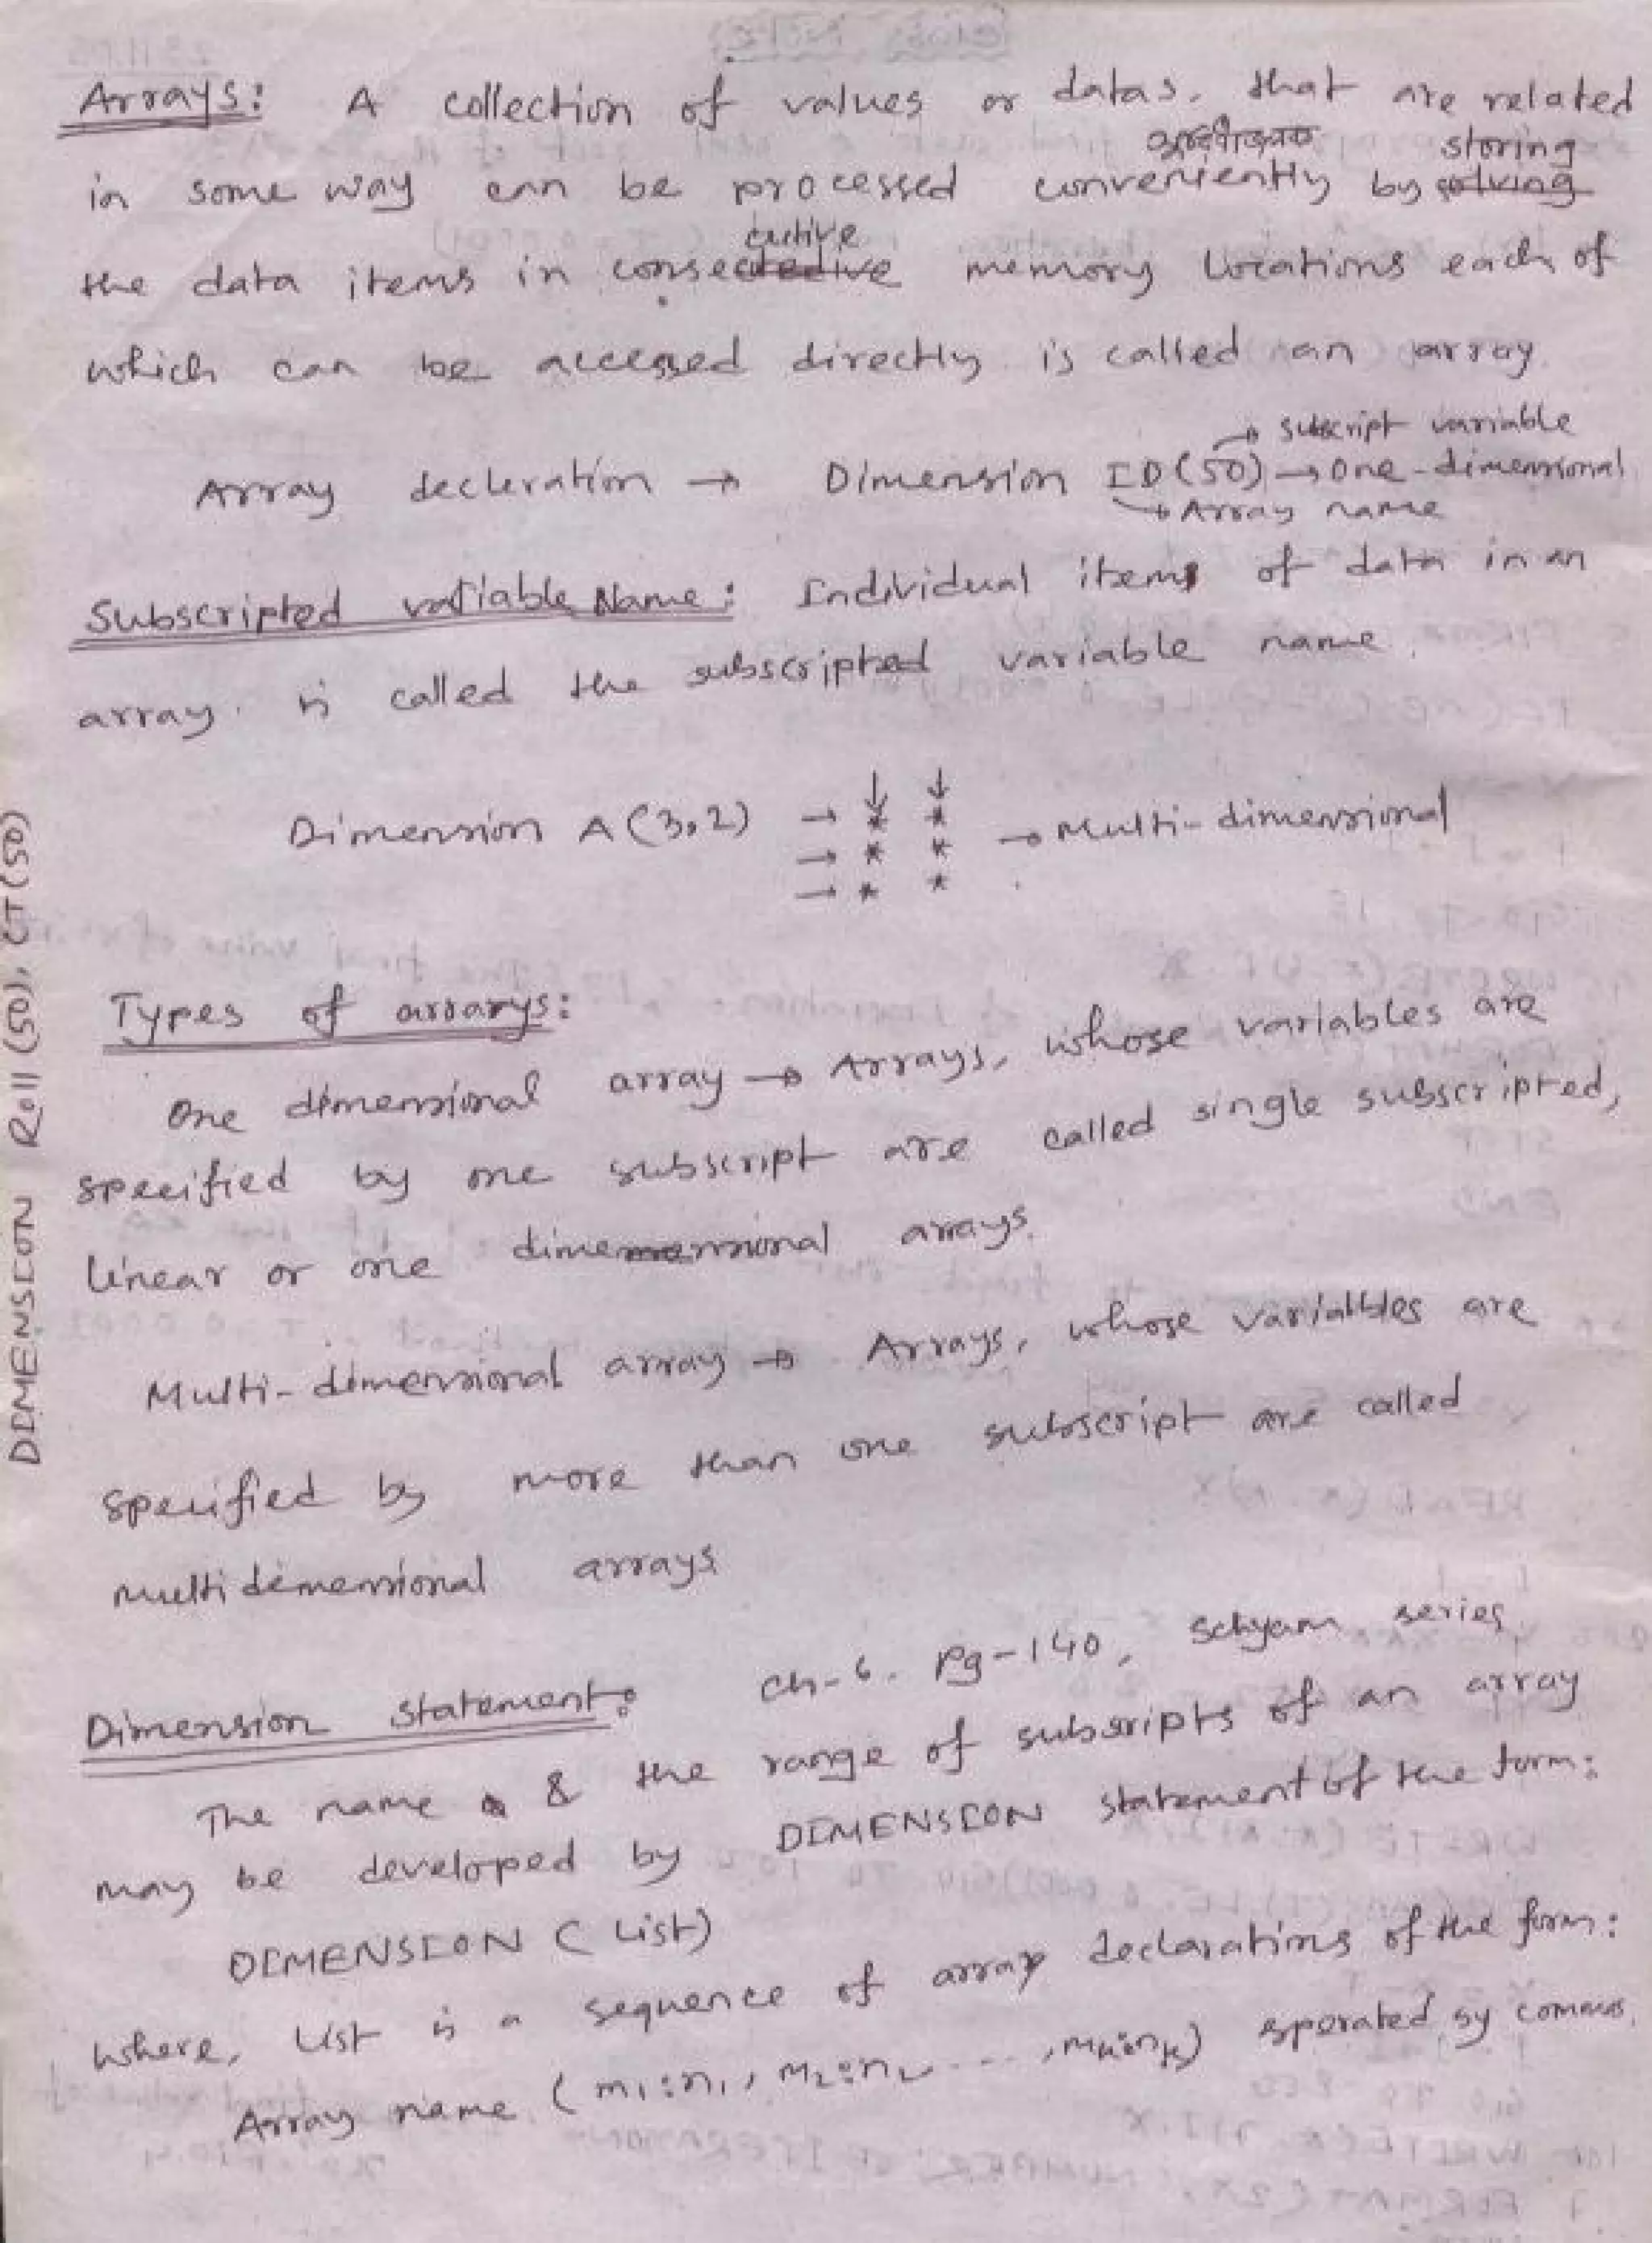 Arrays: A collection of values or datas, that are related
in some way can be processed conveniently by storing
the data items in consecutive memory locations each of
which can be accessed directly is called an array.
subscript variable
Array decleration → Dimension ID(50) → One-dimensional
→ Array name
Subscripted variable Name: Individual items of data in an
array. is called the subscripted variable name.
Dimension A(3,2) → * * → Multi-dimensional
→ * *
→ * *
Types of ararys:
One dimensional array → Arrays, whose variables are
specified by one subscript are called single subscripted,
linear or one dimensional arrays.
Multi-dimensional array → Arrays, whose variables are
specified by more than one subscript are called
multidimensional arrays
Dimension statement: Ch-6. Pg-140, Satyam series
The name & the range of subscripts of an array
may be developed by DIMENSION statement of the form:
DIMENSION (List)
where, List is a sequence of array declarations of the form:
Array name (m1:n1, m2:n2 ...., mk:nk) sperated by commas.
DIMENSION Roll(50), CT(50)